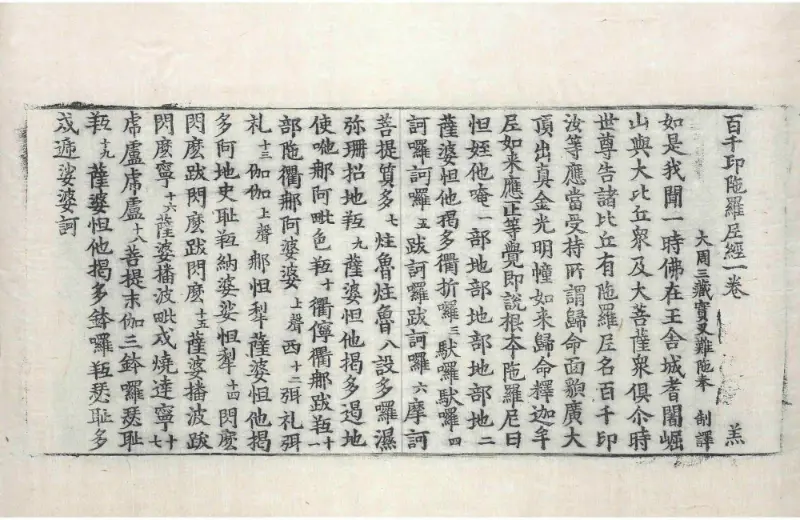 百千印陁羅尼經一卷 羔
大周三藏實叉難陁奉 制譯
如是我聞一時佛在王舍城耆闍崛
山與大比丘衆及大菩薩衆俱尒時
世尊告諸比丘有陁羅尼名百千印
汝等應當受持所謂歸命面貌廣大
頂出真金光明憧如來歸命釋迦牟
尼如來應正等覺即說根本陁羅尼曰
怛姪他唵一部地部地部地部地二
薩婆怛他揭多衢折囉三馱囉馱囉四
訶囉訶囉五跋訶囉跋訶囉六摩訶
菩提質多七炷魯炷魯八設多囉濕
弥珊招地羝九薩婆怛他揭多遏地
使咃郍阿毗色羝十衢儜衢郍跋羝十一
部陁衢郍阿婆婆上聲西十二弭礼弭
礼十三伽伽上聲郍怛犁薩婆怛他揭
多阿地史耻羝納婆娑怛犁十四閃麽
閃麽跋閃麽跋閃麽十五薩婆播波跋
閃麽寧十六薩婆播波毗戍燒達寧十七
虎盧虎盧十八菩提末伽三鉢囉瑟耻
羝十九薩婆怛他揭多鉢囉羝瑟耻多
戍遞娑婆訶